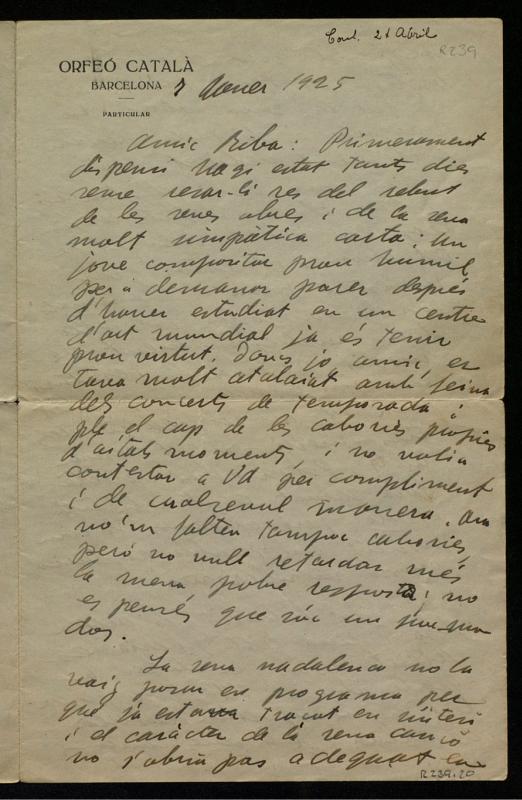 Cont. 21 Abril
R 239
ORFEÓ CATALÀ
BARCELONA
PARTICULAR
7 Janer 1925
Amic Riba: Primerament
dispensi hagi estat tants dies
sense dir-li res del rebut
de les seves obres i de la seva
molt simpàtica carta: Un
jove compositor prou humil
per a demanar parer després
d'haver estudiat en un centre
d'art mundial ja és tenir
prou virtut. Doncs jo, amic, es
tava molt atalaiat amb feina
dels concerts de temporada i
ple el cap de les cabories pròpies
d'aitals moments, i no volia
contestar a Vd per compliment
i de qualsevol manera. Ara
no'm falten tampoc cabories,
però no vull retardar més
la meva pobre resposta; no
es pensés que sóc un
dos.
La seva nadalenca no la
vaig posar en programa per
què ja estava traçat en síntesi
i el caràcter de la seva cançó
no s'obria pas adequat en
R 239.20